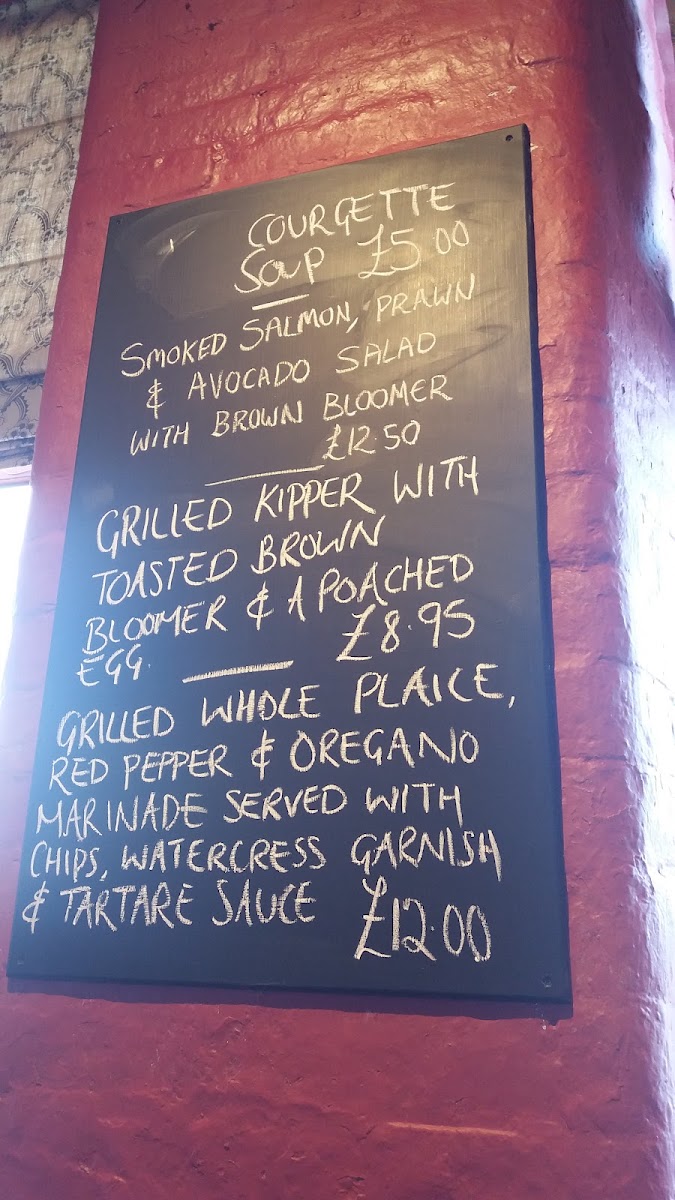 COURGETTE
SOUP £5.00
SMOKED SALMON, PRAWN
& AVOCADO SALAD
WITH BROWN BLOOMER
£12.50
GRILLED KIPPER WITH
TOASTED BROWN
BLOOMER & A POACHED
EGG. £8.95
GRILLED WHOLE PLAICE,
RED PEPPER & OREGANO
MARINADE SERVED WITH
CHIPS, WATERCRESS GARNISH
& TARTARE SAUCE £12.00